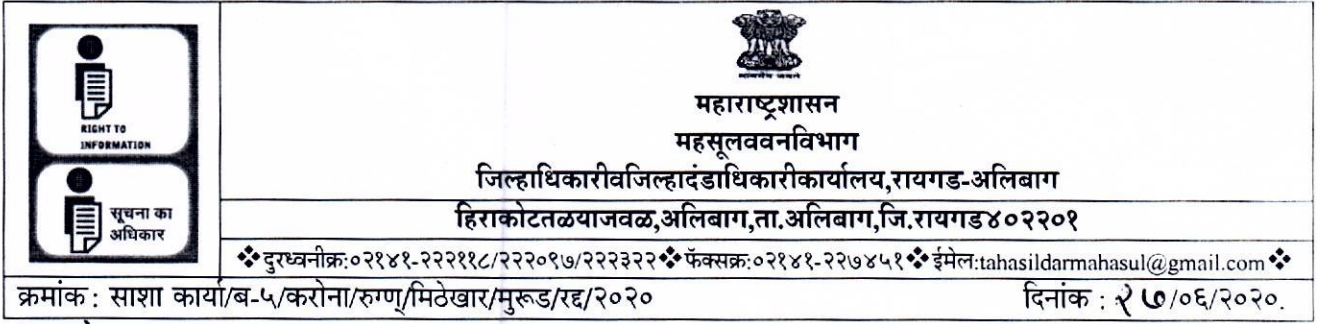 RIGHT TO
INFORMATION
सूचना का
अधिकार
महाराष्ट्रशासन
महसूलववनविभाग
जिल्हाधिकारीवजिल्हादंडाधिकारीकार्यालय,रायगड-अलिबाग
हिराकोटतळयाजवळ,अलिबाग,ता.अलिबाग,जि.रायगड४०२२०१
❖दुरध्वनीक्र:०२१४१-२२२११८/२२२०९७/२२२३२२❖फॅक्सक्र:०२१४१-२२७४५१❖ईमेल:tahasildarmahasul@gmail.com❖
क्रमांक : साशा कार्या/ब-५/करोना/रुग्ण/मिठेखार/मुरूड/रद्द/२०२० दिनांक : २७/०६/२०२०.